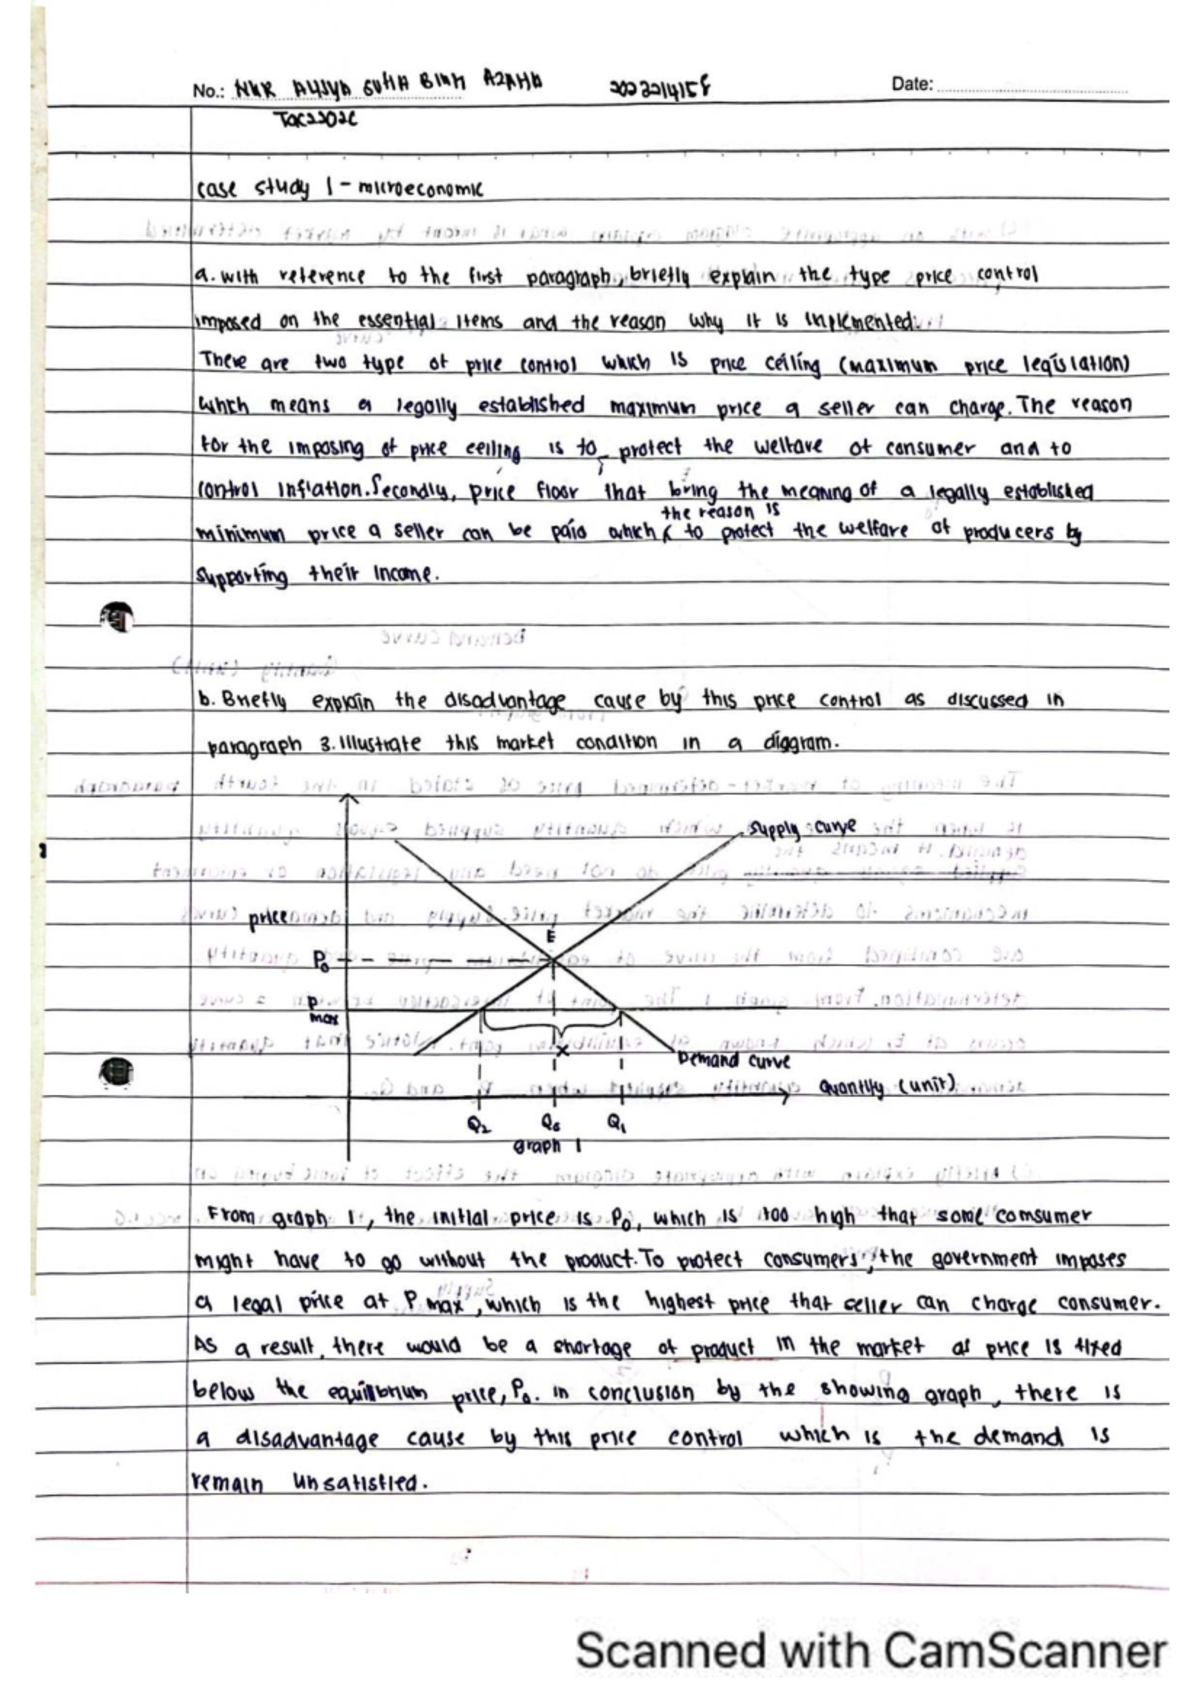 No.: NUR Date:
case study 1 - microeconomic
a. with reference to the first paragraph, briefly explain the type price control
imposed on the essential items and the reason why it is implemented.
There are two type of price control which is price ceiling (maximum price legislation)
which means a legally established maximum price a seller can charge. The reason
for the imposing of price ceiling is to protect the welfare of consumer and to
control inflation. Secondly, price floor that bring the meaning of a legally established
the reason is
minimum price a seller can be paid which to protect the welfare of producers by
supporting their income.
b. Briefly explain the disadvantage cause by this price control as discussed in
paragraph 3. Illustrate this market condition in a diagram.
supply curve
price
E
P₀
P
max
x
Demand curve
quantity (unit)
Q₂ Q₀ Q₁
graph 1
From graph 1, the initial price is P₀, which is too high that some comsumer
might have to go without the product. To protect consumers, the government imposes
a legal price at P max, which is the highest price that seller can charge consumer.
As a result, there would be a shortage of product in the market as price is fixed
below the equilibrium price, P₀. in conclusion by the showing graph, there is
a disadvantage cause by this price control which is the demand is
remain unsatisfied.
Scanned with CamScanner